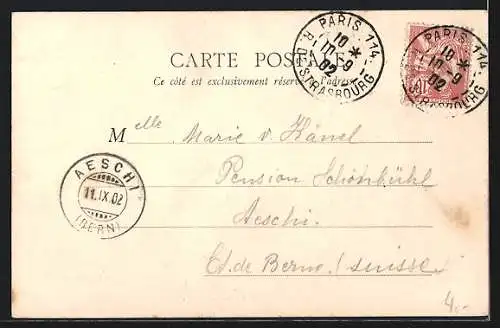 PARIS 114
10 *
10-9
02
R. DE STRASBOURG
PARIS 114
10 *
10-9
02
STRASBOURG
CARTE POSTALE
Ce côté est exclusivement réservé à l'adresse
Melle Marie v. Känel
Pension Schönbühl
Aeschi.
Ct. de Berne. (Suisse)
AESCHI
11.IX.02
(BERN)
4.-